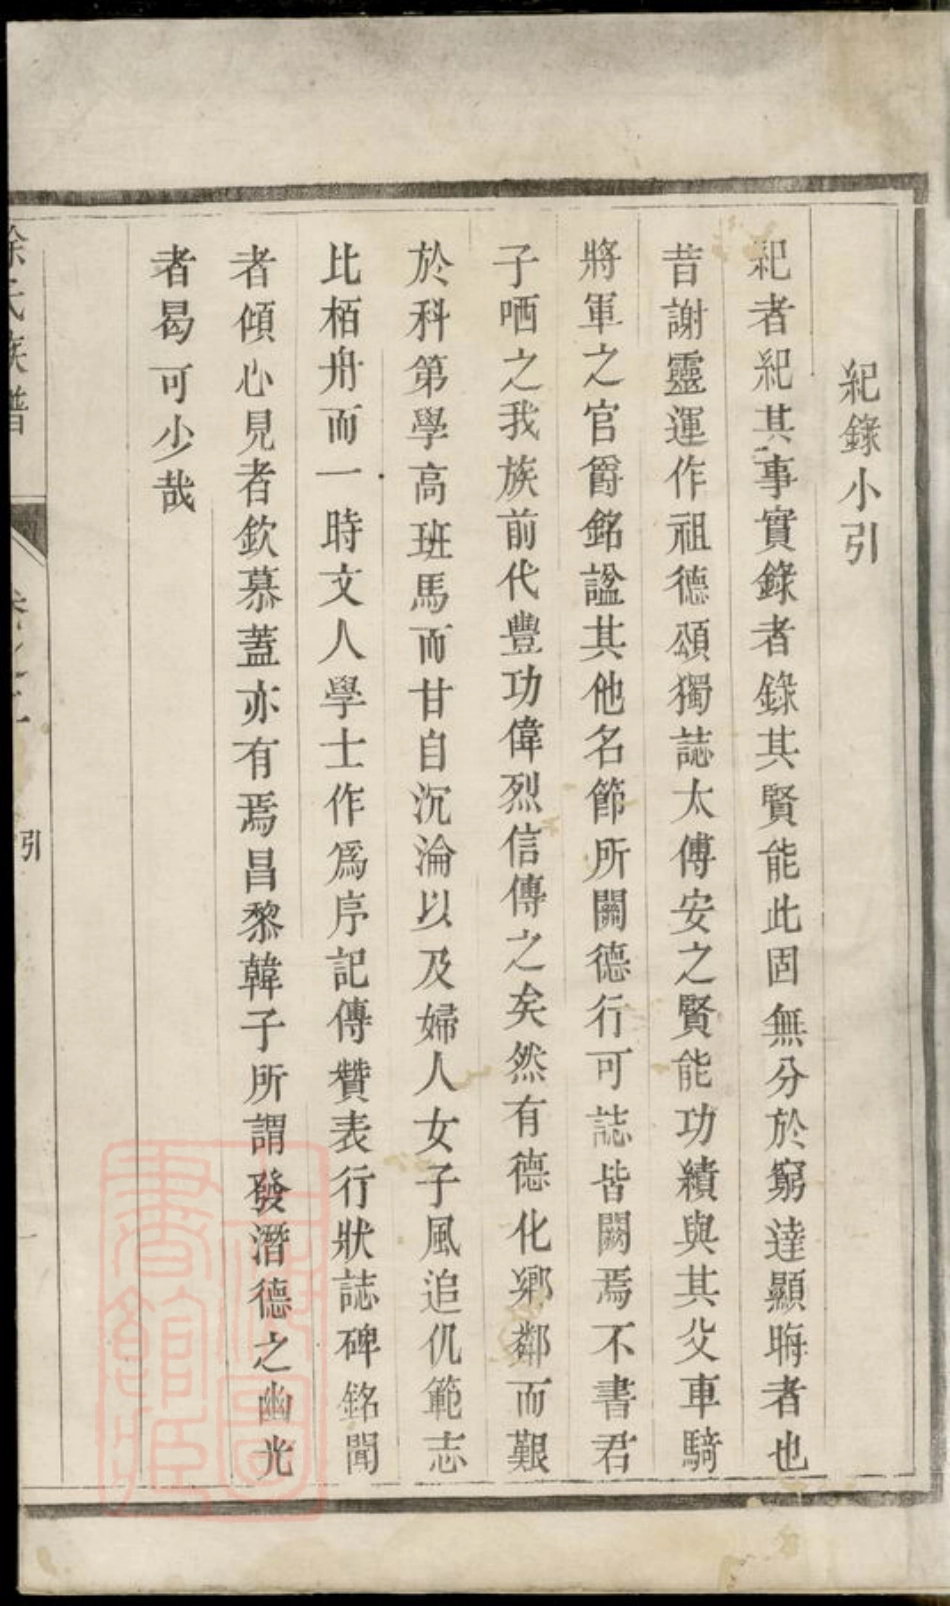 紀錄小引
紀者紀其事實錄者錄其賢能此固無分於窮達顯晦者也
昔謝靈運作祖德頌獨誌太傅安之賢能功績與其父車騎
將軍之官爵銘謚其他名節所關德行可誌皆闕焉不書君
子哂之我族前代豐功偉烈信傳之矣然有德化鄉鄰而艱
於科第學高班馬而甘自沉淪以及婦人女子風追仉範志
比栢舟而一時文人學士作爲序記傳贊表行狀誌碑銘聞
者傾心見者欽慕蓋亦有焉昌黎韓子所謂發潛德之幽光
者曷可少哉
徐氏族譜
引